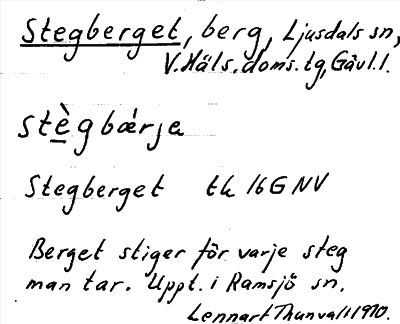 Stegberget, berg, Ljusdals sn,
V.Häls.doms.tg, Gävl.l.
stè̱gbæ̀rje
Stegberget tk 16G NV
Berget stiger för varje steg
man tar. Uppt. i Ramsjö sn.
Lennart Thunvall 1970.